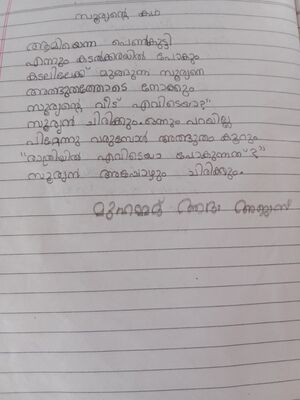 സൂര്യന്റെ കഥ
ആമിയെന്ന പെൺകുട്ടി
എന്നും കടൽക്കരയിൽ പോകും
കടലിലേക്ക് മുങ്ങുന്ന സൂര്യനെ
അത്ഭുതത്തോടെ നോക്കും
സൂര്യന്റെ വീട് എവിടെയാ?"
സൂര്യൻ ചിരിക്കും. ഒന്നും പറയില്ല
പിറ്റേന്നു വരുമ്പോൾ അത്ഭുതം കൂറും
"രാത്രിയിൽ എവിടെയാ പോകുന്നത്?"
സൂര്യൻ അപ്പോഴും ചിരിക്കും.
മുഹമ്മദ്